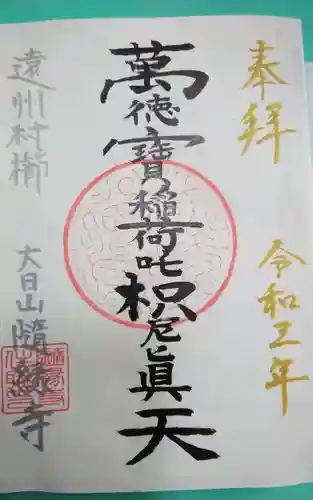 奉拝
令和二年
萬徳寶稲荷吒枳尼眞天
遠州村櫛
大日山隨縁寺